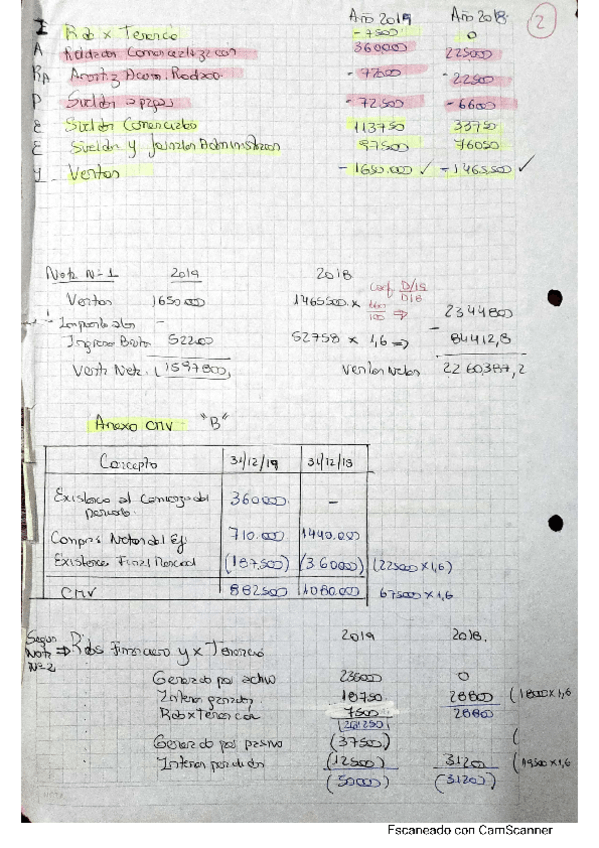 Año 2019 Año 2018 2
I Rdo x Tenencia - 7500 0
A Rodados Comercialización 360000 225000
RA Amortiz Acum. Rodado - 72000 - 22500
P Sueldos a pagar - 72500 - 6600
E Sueldos Comerciales 113750 33750
E Sueldos y Jornales Administración 97500 76050
Y Ventas - 1650.000 ✓ - 1465500 ✓
Nota N=1 2019 2018
coef D/19
D/18
Ventas 1650.000 1465500 x 160/100 ⇒ 2344800
Ingresos Brutos 52200 52758 x 1,6 ⇒ 84412,8
Venta Neta. 1597800, Ventas Netas 2260387,2
Anexo CMV "B"
Concepto 31/12/19 31/12/18
Existencia al Comienzo del
periodo. 360000. -
Compras Netas del Ej 710.000 1440.000
Existencia Final (187500) (360000) (225000 x 1,6)
CMV 882500 1080.000 675000 x 1,6
Según
Nota ⇒ Rdos Financiero y x Tenencia 2019 2018.
Nº 2
Generado por activo 0
Interes ganados 18750 28800 (18000 x 1,6
Rdo x Tenencia 7500 28800
Generado por pasivo (37500) (
Interes perdidos (12500) 31200 (19500 x 1,6
(50000) (31200)
Escaneado con CamScanner